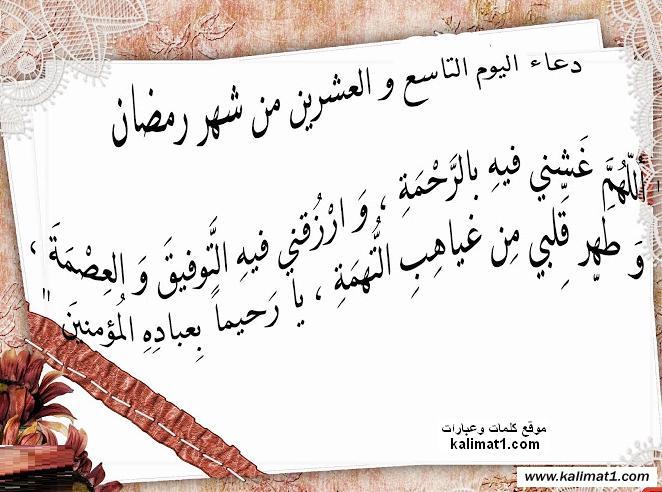 دعاء اليوم التاسع و العشرين من شهر رمضان
" أللّهُمَّ غَشِّني فيهِ بالرَّحْمَةِ ، وَ ارْزُقني فيهِ التَّوفيقَ وَ العِصْمَةَ ،
وَ طَهِّر قَلبي مِن غياهِبِ التُّهمَةِ ، يا رَحيماً بِعبادِهِ المُؤمنينَ "
موقع كلمات وعبارات
kalimat1.com
www.kalimat1.com